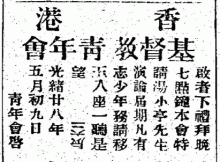 香港
基督教青年會
啟者下禮拜晚
七點鐘本會特
請湯小亭先生
演論屆期凡有
志少年務請移
玉入座一聽是
望
光緒廿八年
五月初九日
青年會啓